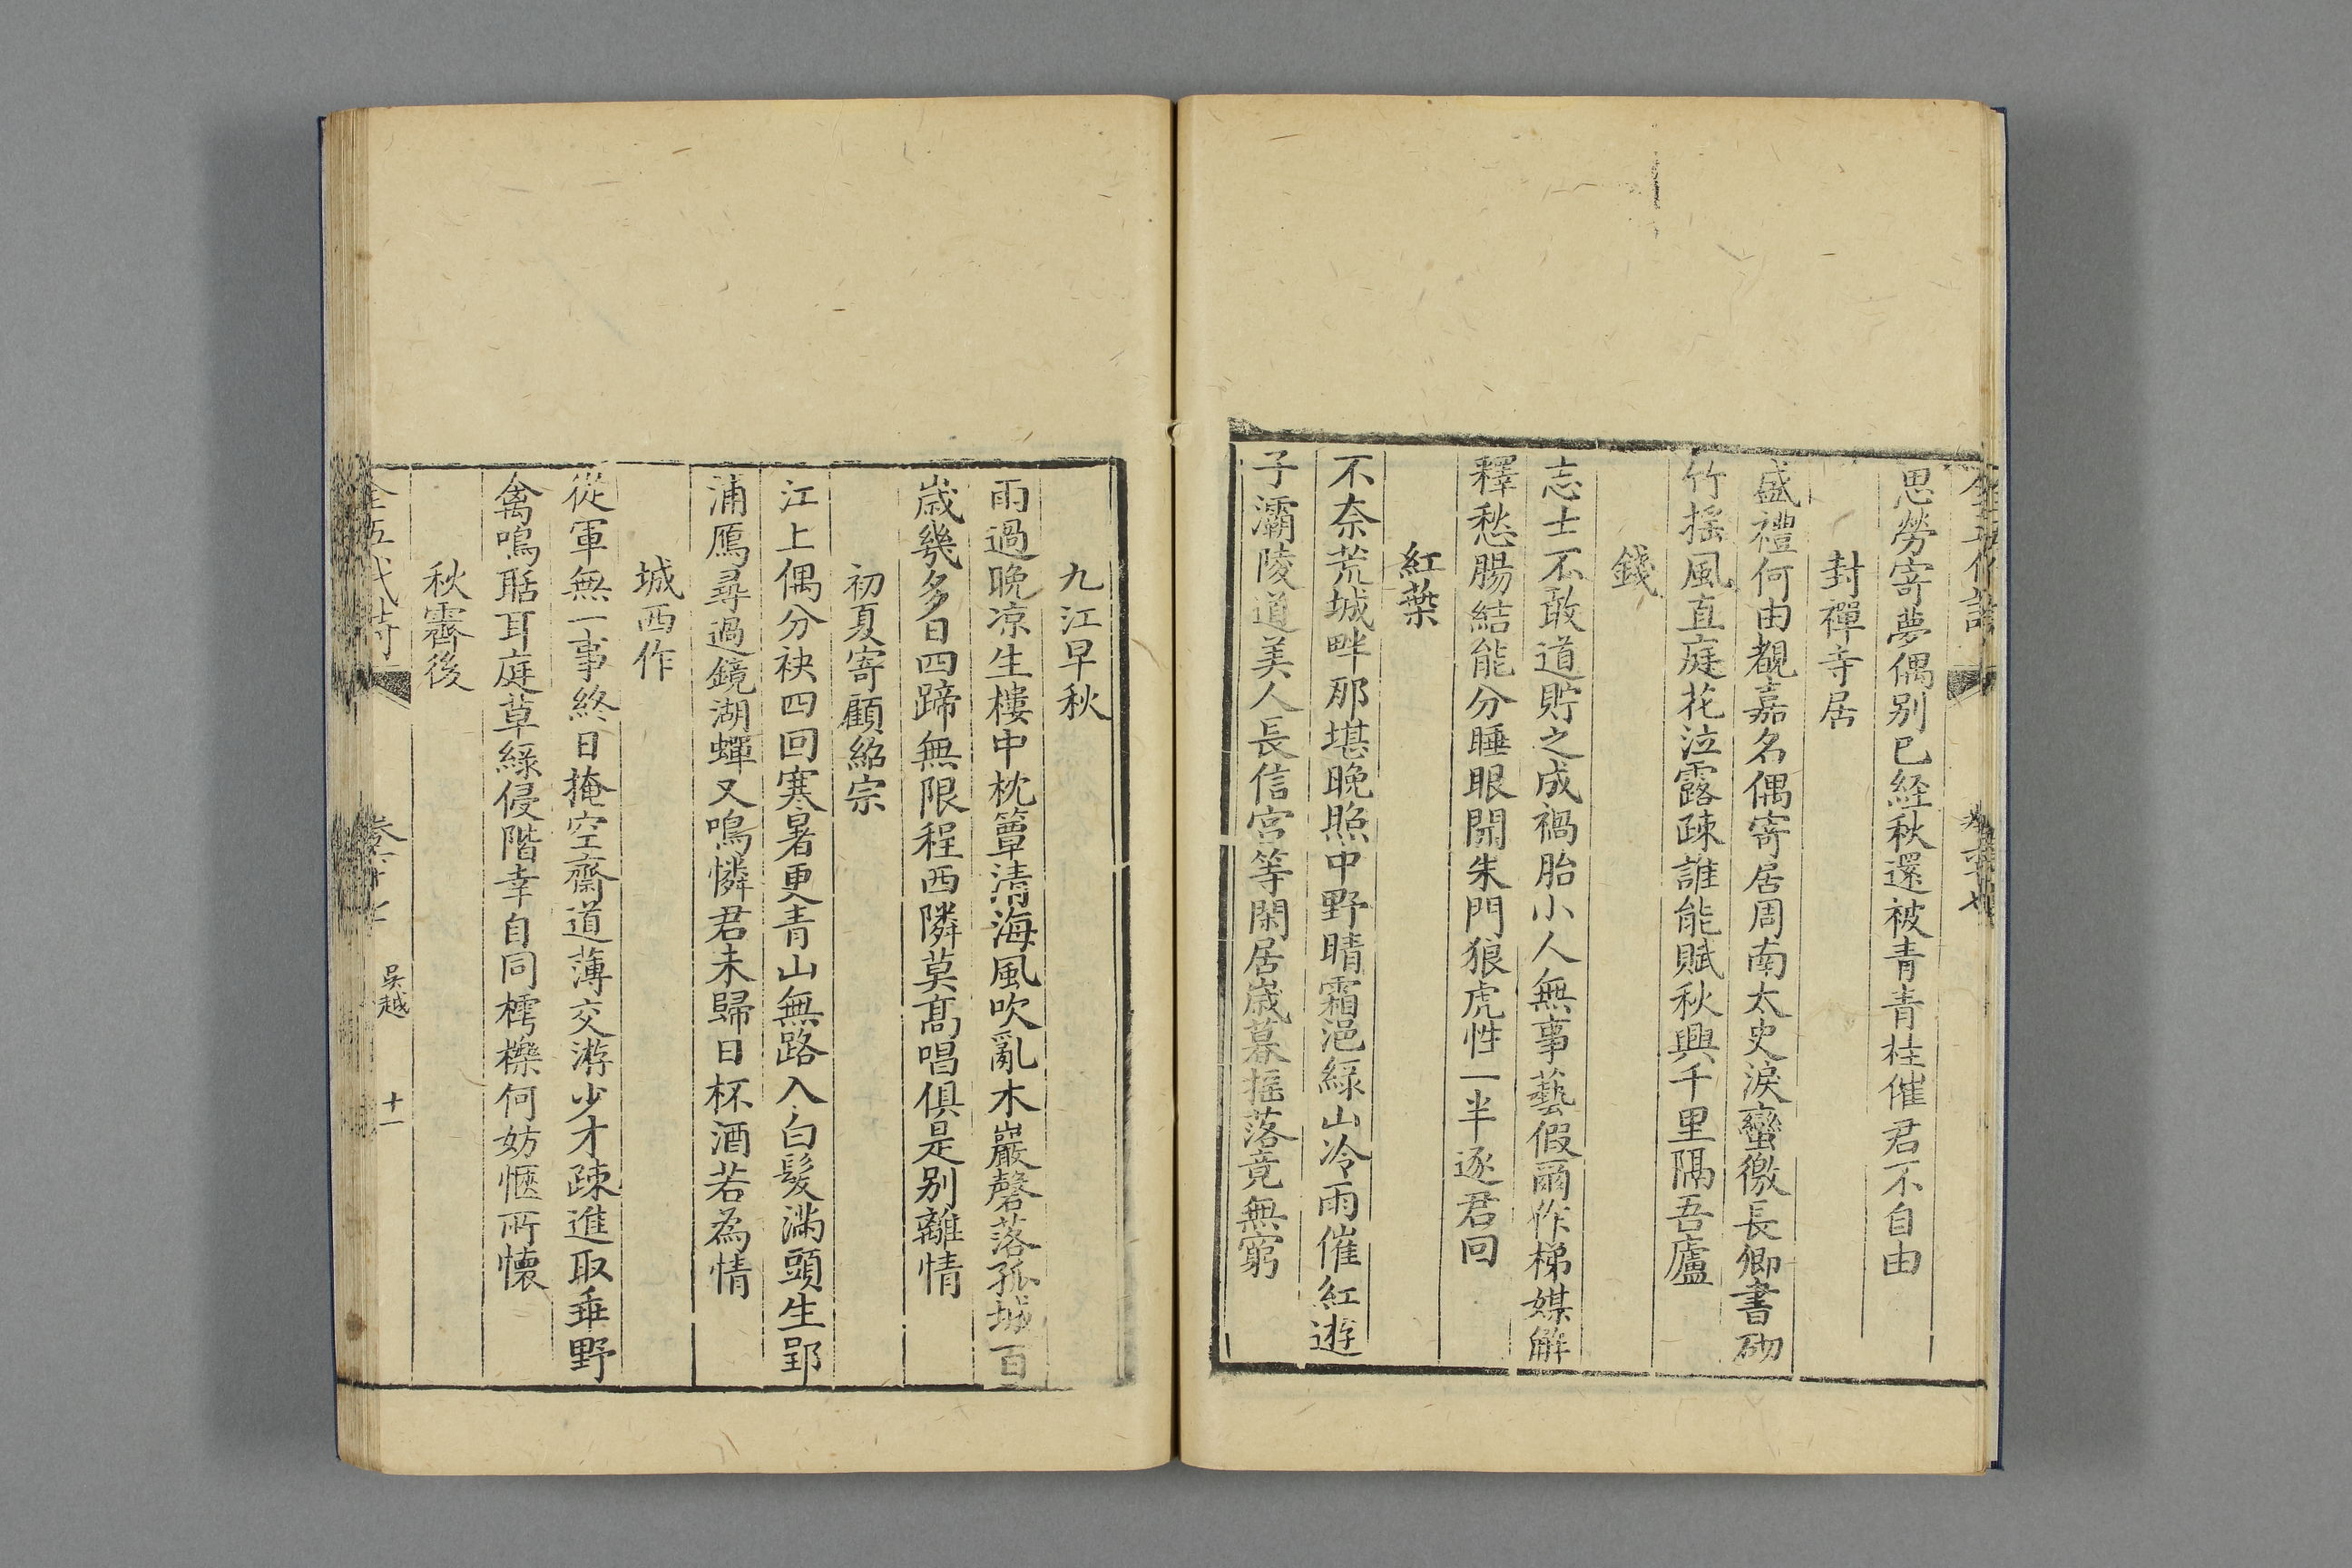 思勞寄夢偶别已経秋還被青青桂催君不自由
封禪寺居
盛禮何由覩嘉名偶寄居周南太史淚蠻徼長卿書砌
竹揺風直庭花泣露疎誰能賦秋興千里隔吾廬
錢
志士不敢道貯之成禍胎小人無事藝假爾作梯媒解
釋愁腸結能分睡眼開朱門狼虎性一半逐君回
紅葉
不奈荒城畔那堪晚照中野晴霜浥綠山冷雨催紅遊
子灞陵道美人長信宮等閑居歲暮揺落竟無窮
九江早秋
雨過晚凉生樓中枕簟清海風吹亂木巖磬落孤城百
歲幾多日四蹄無限程西隣莫髙唱俱是别離情
初夏寄顧紹宗
江上偶分袂四回寒暑更青山無路入白髮滿頭生郢
浦鴈尋過鏡湖蟬又鳴憐君未歸日杯酒若為情
城西作
從軍無一事終日掩空齋道薄交游少才疎進取乖野
禽鳴聒耳庭草綠侵階幸自同樗櫟何妨愜所懷
秋霽後
全五代詩 卷六十七 吳越 十一